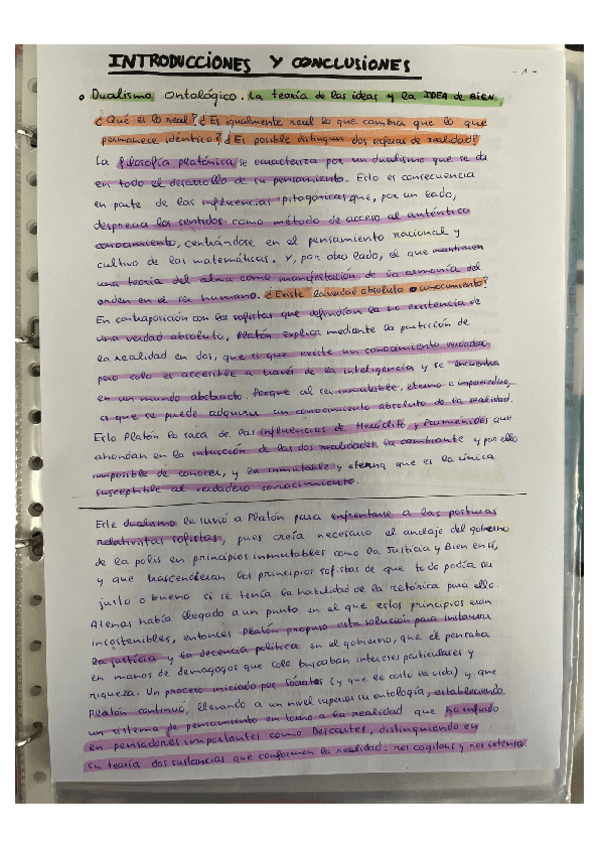 INTRODUCCIONES Y CONCLUSIONES
- 1 -
Dualismo Ontológico. La teoría de las ideas y la IDEA de BIEN
¿Qué es lo real? ¿Es igualmente real lo que cambia que lo que
permanece idéntico? ¿Es posible distinguir dos esferas de realidad?
La filosofía platónica se caracteriza por un dualismo que se da
en todo el desarrollo de su pensamiento. Esto es consecuencia
en parte de las influencias pitagóricas que, por un lado,
desprecia los sentidos como método de acceso al auténtico
conocimiento, centrándose en el pensamiento racional y
cultivo de las matemáticas. Y, por otro lado, el que mantienen
una teoría del alma como manifestación de la armonía del
orden en el ser humano. ¿Existe la verdad absoluta o conocimiento?
En contraposición con los sofistas que defendían la no existencia de
una verdad absoluta, Platón explica mediante la partición de
la realidad en dos, que si que existe un conocimiento verdadero
pero solo es accesible a través de la inteligencia y se encuentra
en un mundo abstracto. Porque al ser inmutable, eterno e imperecedero,
si que se puede adquirir un conocimiento absoluto de la realidad.
Esto Platón lo saca de las influencias de Heráclito y Parménides que
ahondan en la intuición de las dos realidades la cambiante y por ello
imposible de conocer, y la inmutable y eterna que es la única
susceptible al verdadero conocimiento.
Este dualismo le sirvió a Platón para enfrentarse a las posturas
relativistas sofistas, pues creía necesario el anclaje del gobierno
de la polis en principios inmutables como la Justicia y Bien en sí,
y que trascendieran los principios sofistas de que todo podía ser
justo o bueno si se tenía la habilidad de la retórica para ello.
Atenas había llegado a un punto en el que estos principios eran
insostenibles, entonces Platón propuso esta solución para instaurar
la justicia y la decencia política en el gobierno, que él pensaba
en manos de demagogos que solo buscaban intereses particulares y
riqueza. Un proceso iniciado por Sócrates (y que le costó la vida) y que
Platón continuó, llevando a un nivel superior su ontología, estableciendo
un sistema de pensamiento en torno a la realidad que ha influido
en pensadores importantes como Descartes, distinguiendo en
su teoría dos sustancias que conforman la realidad: res cogitans y res extensa